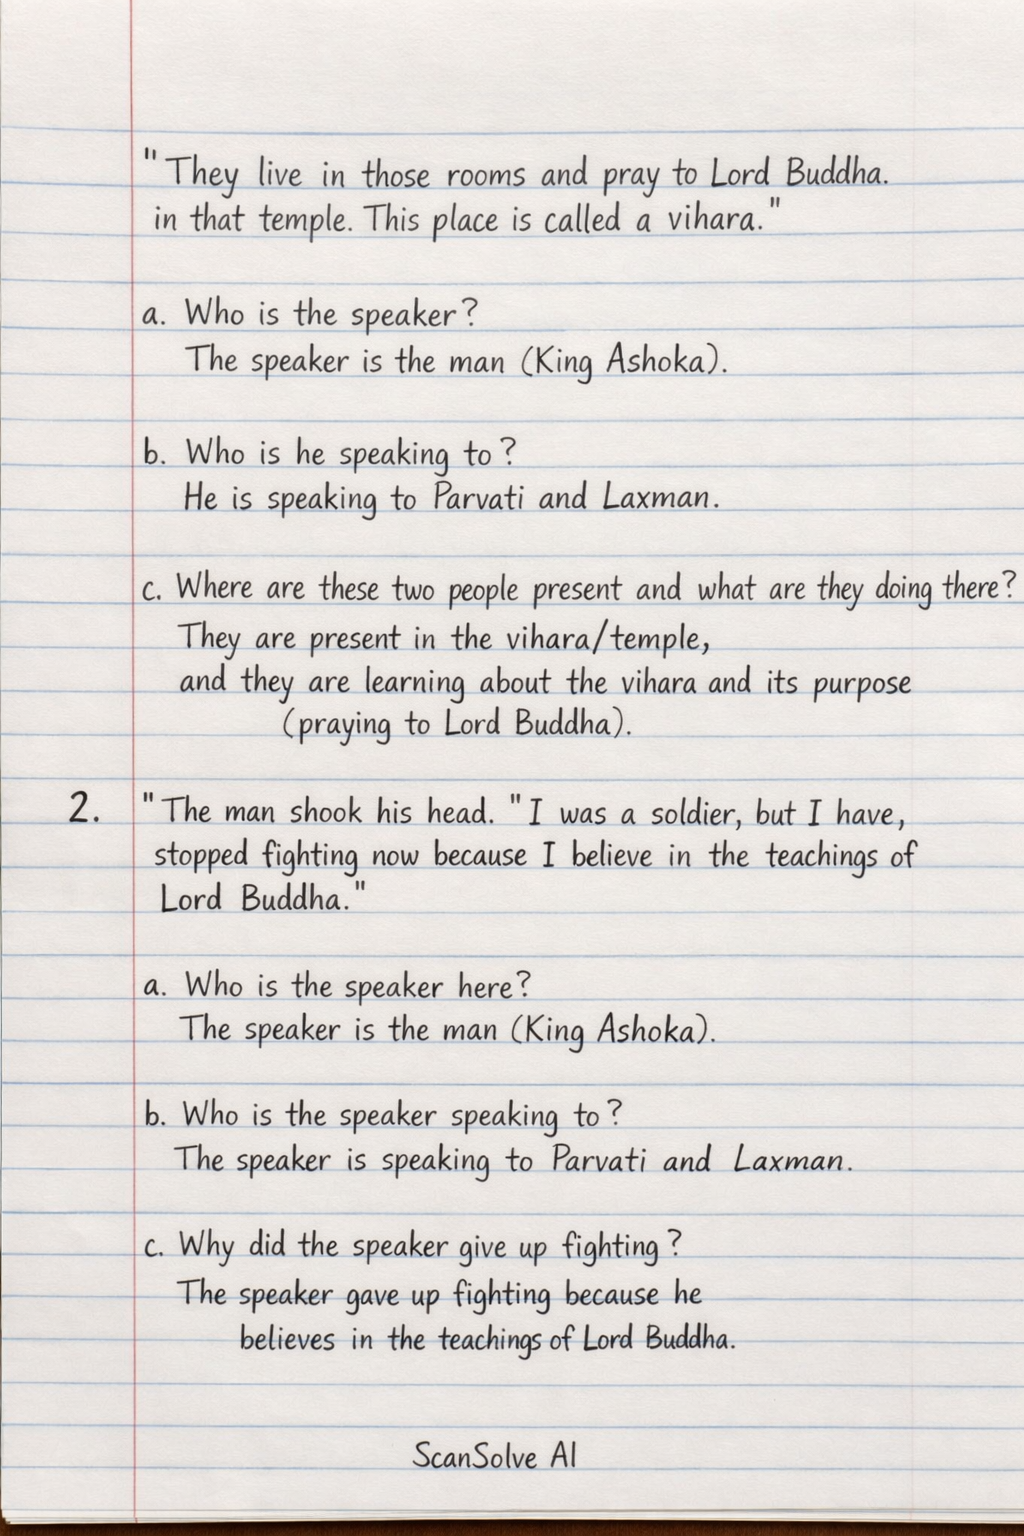 "They live in those rooms and pray to Lord Buddha.
in that temple. This place is called a vihara."
a. Who is the speaker?
The speaker is the man (King Ashoka).
b. Who is he speaking to?
He is speaking to Parvati and Laxman.
c. Where are these two people present and what are they doing there?
They are present in the vihara/temple,
and they are learning about the vihara and its purpose
(praying to Lord Buddha).
2. "The man shook his head. "I was a soldier, but I have,
stopped fighting now because I believe in the teachings of
Lord Buddha."
a. Who is the speaker here?
The speaker is the man (King Ashoka).
b. Who is the speaker speaking to?
The speaker is speaking to Parvati and Laxman.
c. Why did the speaker give up fighting?
The speaker gave up fighting because he
believes in the teachings of Lord Buddha.
ScanSolve AI